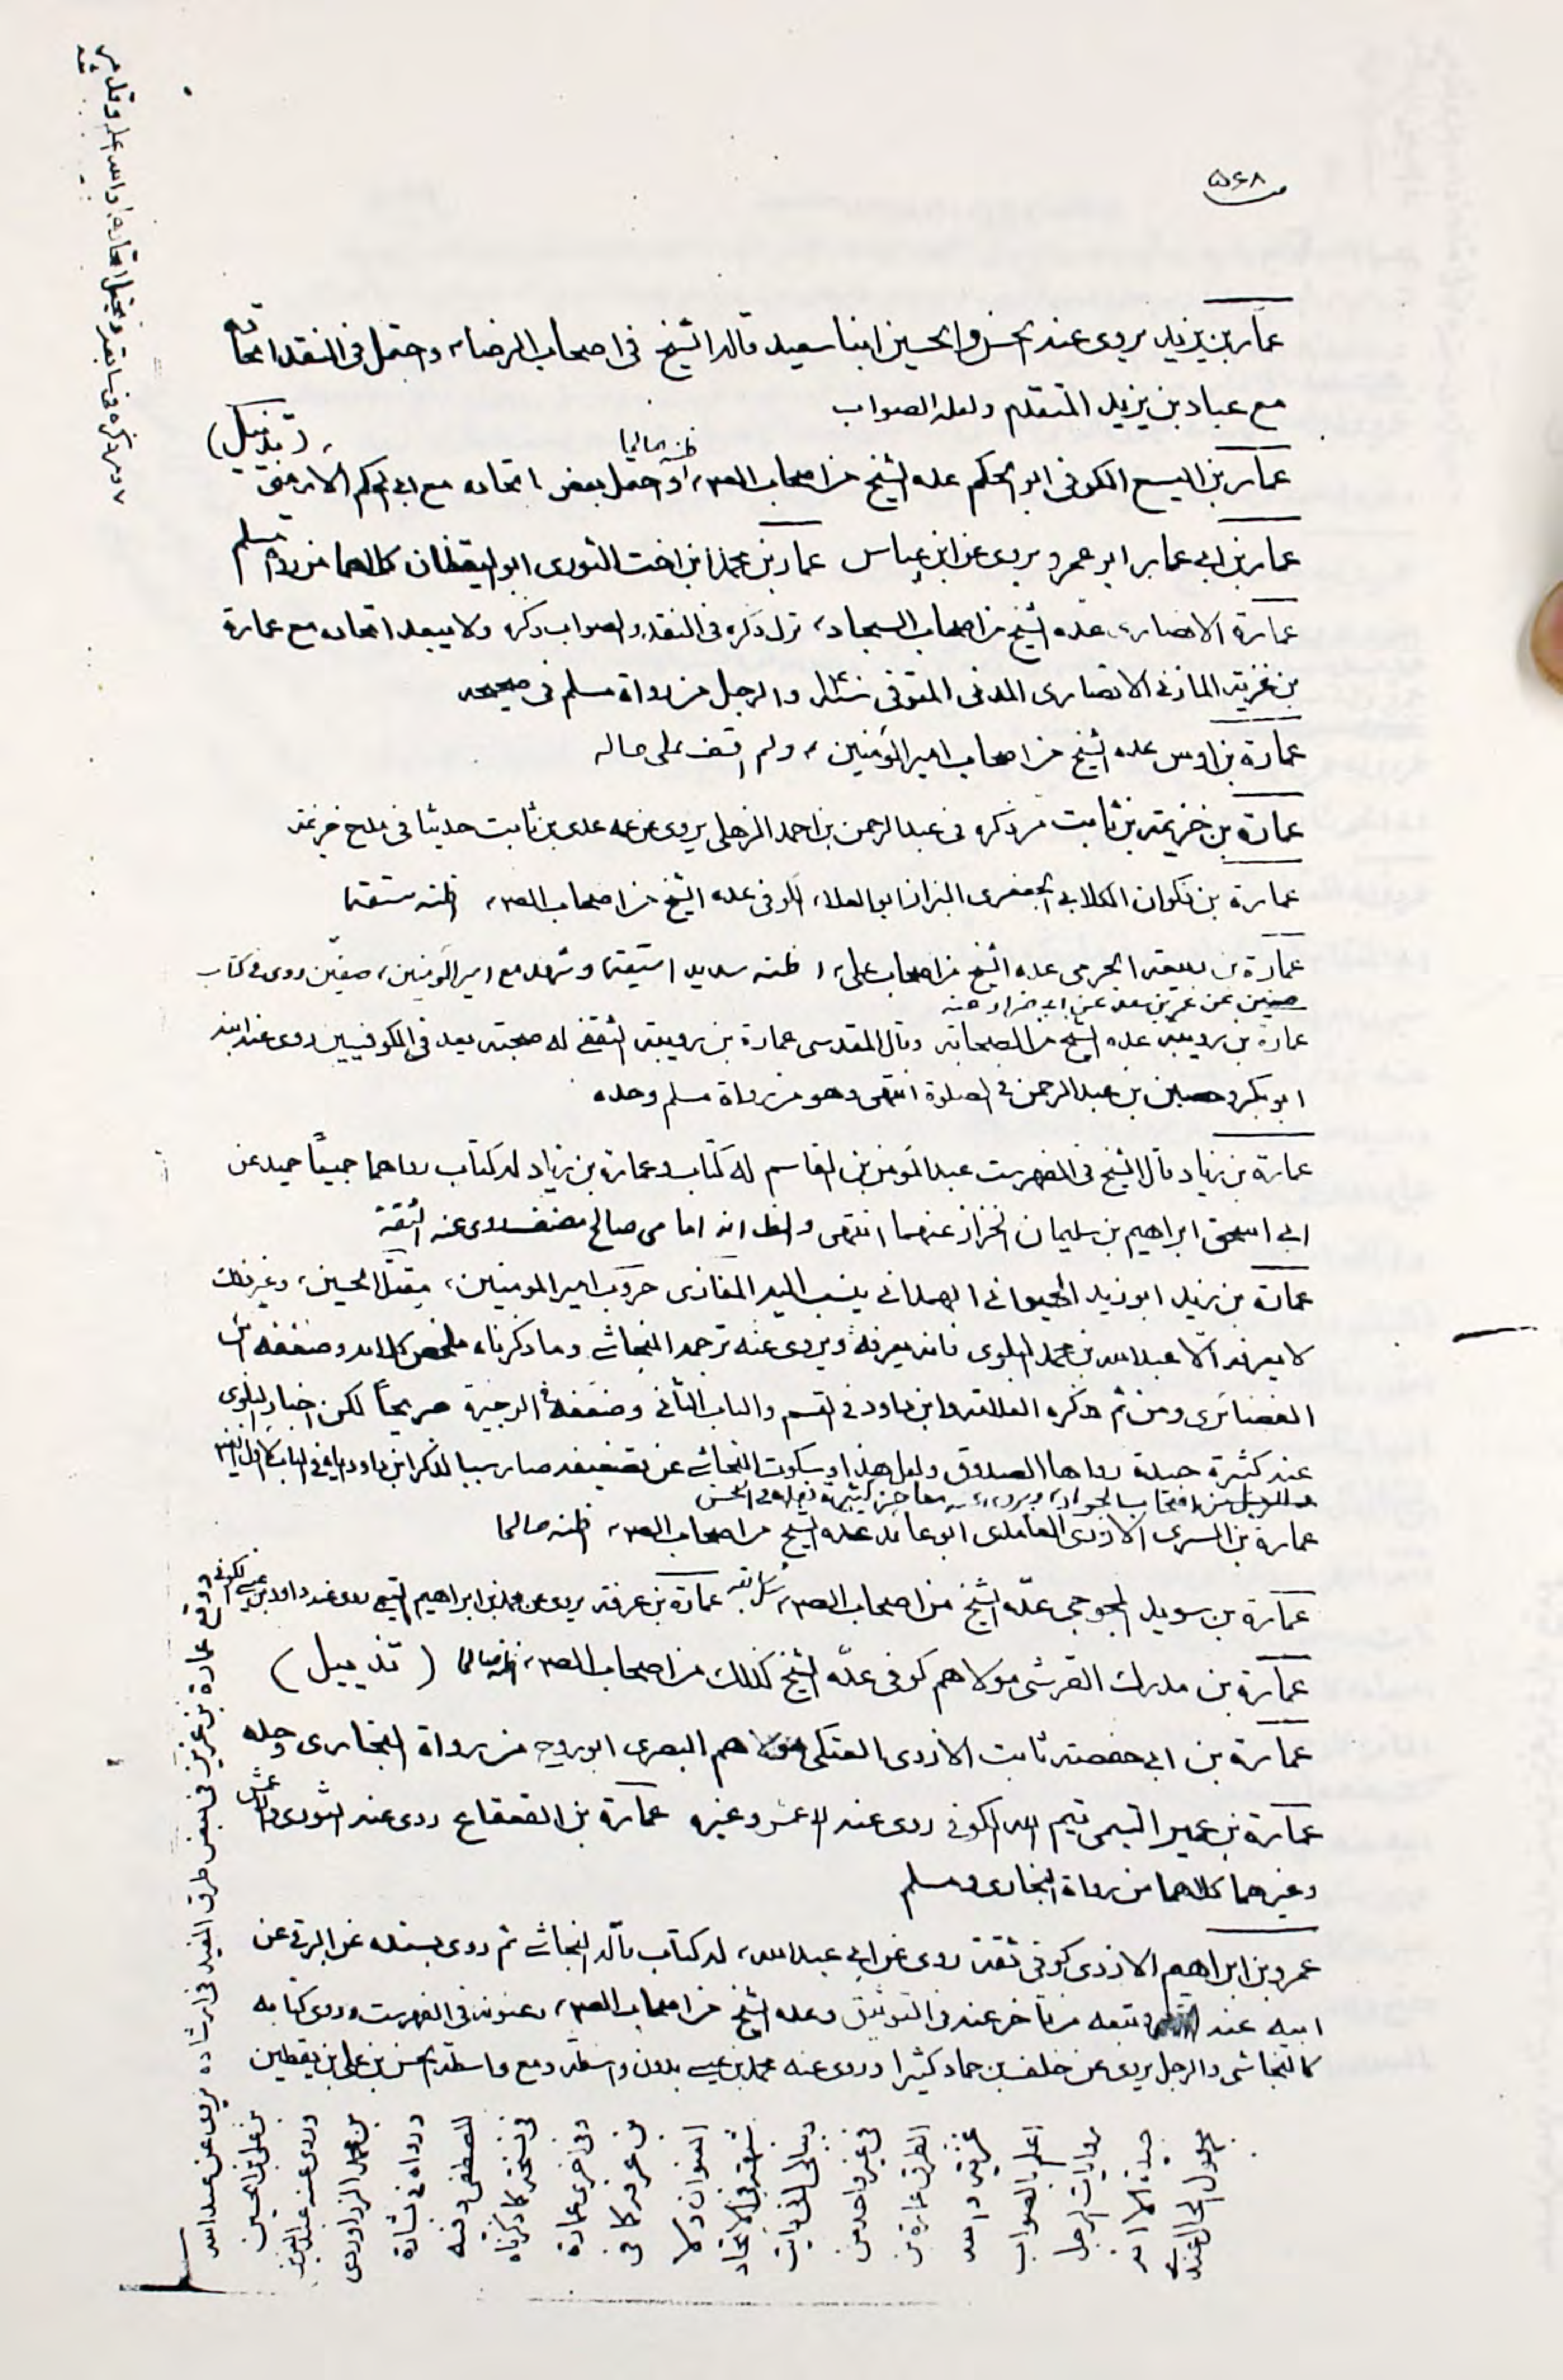 ص ۵۶۸
عمار بن يزيد يروى عنه الحسن والحسين ابنا سعيد قاله الشيخ في اصحاب الرضا، واحتمل في النقد اتحاده
مع عباد بن يزيد المتقدم ولعله الصواب
عمار بن اليسع الكوفى ابو الحكم عده الشيخ من اصحاب الص، اظنه صالحا واحتمل بعض اتحاده مع ابي الحكم الارمنى (تذييل)
عمار بن ابي عمار ابو عمرو يروى عن ابن عباس عمار بن محمد ابن اخت الثورى ابو اليقظان كلاهما من رواة مسلم
عمارة الانصارى عده الشيخ من اصحاب السجاد، ترك ذكره في النقد والصواب ذكره ولا يبعد اتحاده مع عمارة
بن غزية المازنى الانصارى المدنى المتوفى والرجل من رواة مسلم فى صحيحه
عمارة بن اوس عده الشيخ من اصحاب امير المؤمنين، ولم اقف على حاله
عمارة بن خزيمة بن ثابت مر ذكره فى عبد الرحمن بن احمد الذهلى يروى عن عدى بن ثابت حديثا فى مدح خزيمة
عمارة بن ذكوان الكلابي الجعفرى البزاز ابو العلاء الكوفى عده الشيخ من اصحاب الص، اظنه مستقيما
عمارة بن ربيعة الجرمى عده الشيخ من اصحاب على، اظنه سديد استقيما وشهد مع امير المؤمنين، صفين روى في كتاب
صفين عن عمر بن سعد عن عنه
عمارة بن رويبة عده الشيخ من الصحابة وقال المقدسى عمارة بن رويبة الثقفى له صحبة يعد في الكوفيين روى عنه ابنه
ابو بكر وحصين بن عبد الرحمن في الصلوة انتهى وهو من رواة مسلم وحده
عمارة بن زياد قال الشيخ فى الفهرست عبد المؤمن بن القاسم له كتاب وعمارة بن زياد له كتاب رواهما جميعًا حميد عن
ابي اسحق ابراهيم بن سليمان الخزاز عنهما انتهى والظ انه امامى صالح مصنف روى عنه الثقة
عمارة بن زيد ابو زيد الخيوانى الهمدانى ينسب اليه المغازى حروب امير المومنين، مقتل الحسين، وغير ذلك
لا يعرفه الا عبد الله بن محمد البلوى فانه يعرفه ويروى عنه ترجمه النجاشى وما ذكرناه ملخص كلامه وضعفه ابن
الغضائرى ومن ثم ذكره العلامة وابن داود في القسم والباب الثانى وضعفه في الوجيزة صريحاً لكن اخبار البلوى
عنه كثيرة جيدة رواها الصدوق ولعل هذا وسكوت النجاشى عن تضعيفه صار سببا لذكر ابن داود اياه في الباب الاول ايضا
والرجل من اصحاب الجواد، ويروى معاجز كثيرة فهو في الحسن
عمارة بن السرى الازدى الغامدى ابو عائذ عده الشيخ من اصحاب الص، اظنه صالحا
عمارة بن سويد عده الشيخ من اصحاب الص، كسابقه عمارة بن عرفة يروى عن محمد بن ابراهيم التيمى روى عنه داود بن عيسى الكوفى
عمارة بن مدرك القرشى مولاهم كوفى عده الشيخ كذلك من اصحاب الص، اظنه صالحا (تذييل)
عمارة بن ابي حفصة ثابت الازدى العتكى مولاهم البصرى ابو روح من رواة البخارى وحده
عمارة بن عمير التيمى تيم الله الكوفى روى عنه الاعمش وغيره عمارة بن القعقاع روى عنه الثورى والاعمش
وغيرهما كلاهما من رواة البخارى ومسلم
عمرو بن ابراهيم الازدى كوفى ثقة روى عن ابي عبد الله، له كتاب قاله النجاشى ثم روى بسنده عن البرقى عن
ابيه عنه وتبعه من تأخر عنه فى التوثيق وعده الشيخ من اصحاب الص، وعنونه فى الفهرست وروى كتابه
كالنجاشى والرجل يروى عن خلف بن حماد كثيرا وروى عنه محمد بن عيسى بدون واسطة ومع واسطة الحسن بن على بن يقطين
ووقع عمارة بن غزية فى بعض طرق المفيد فى ارشاده يروى عن عبد الله
بن على بن الحسين
وروى عنه عبد العزيز
بن محمد الدراوردى
ورواه فى بشارة
المصطفى وفيه
فى نسخة كما ذكرناه
وفى اخرى عمارة
بن عرفة كما فى
العنوان ولا
شبهة فى الاتحاد
وببالى انى رايت
فى غير واحد من
الطرق عمارة بن
غزية والله
اعلم بالصواب
روايات الرجل
جيدة الا انه
مجهول الحال عندى